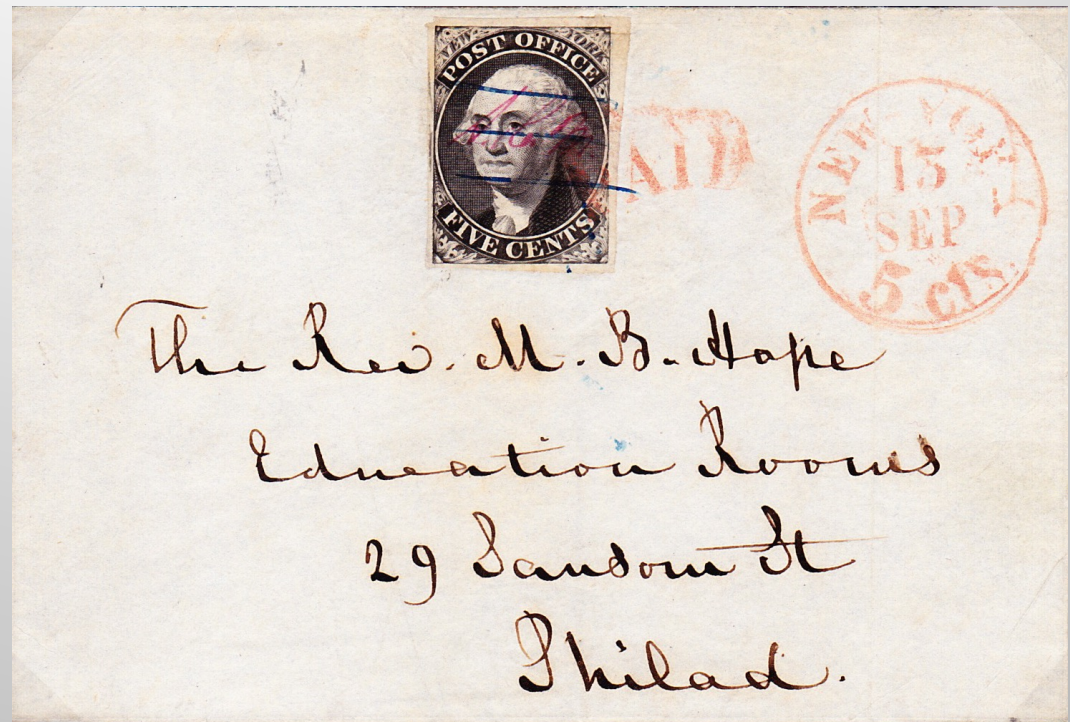 NEW YORK
POST OFFICE
FIVE CENTS
PAID
NEW-YORK
15
SEP
5 cts.
The Rev. M. B. Hope
Education Rooms
29 Sansom St
Philad.